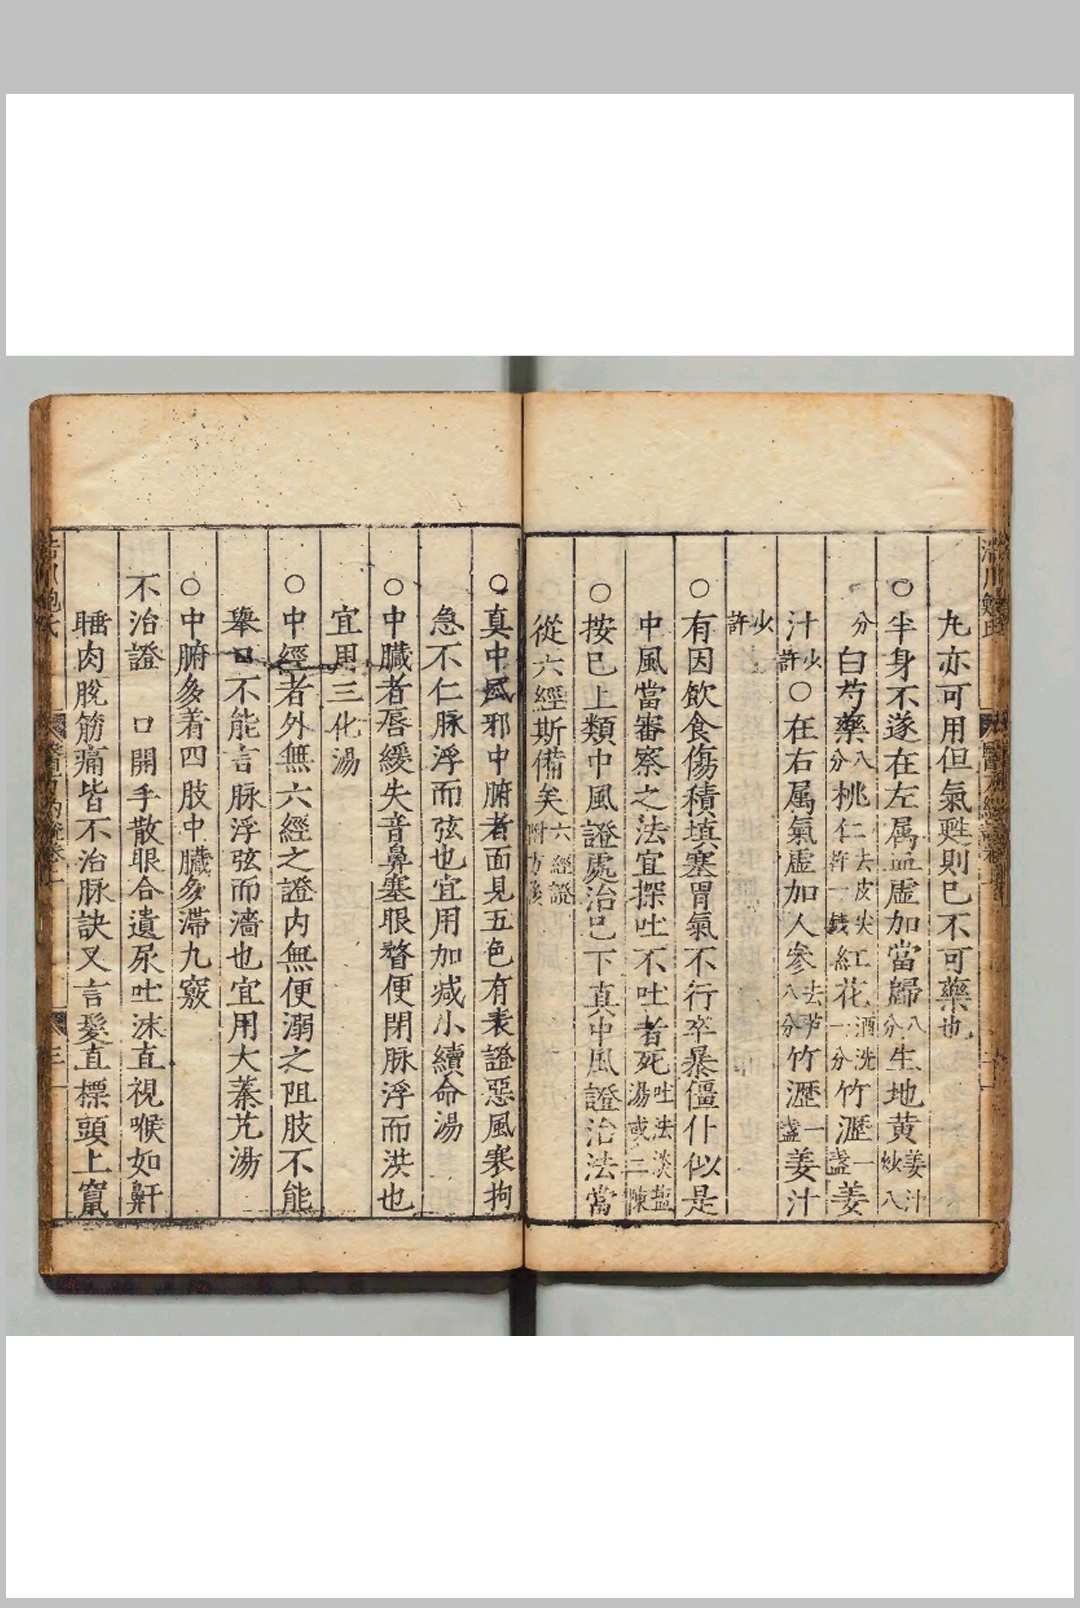 丸亦可用但氣甦則已不可藥也
○半身不遂在左属血虛加當歸八分生地黄姜汁炒八
分白芍藥八分桃仁去皮尖二十許一錢紅花酒洗一分竹瀝一盞姜
汁少許○在右属氣虛加人參去芦八分竹瀝一盞姜汁
少許
○有因飲食傷積填塞胃氣不行卒暴僵仆似是
中風當審察之法宜探吐不吐者死吐法淡塩湯或二陳
按已上類中風證處治已下真中風證治法當
從六經斯備矣六經證附方後
○真中風邪中腑者面見五色有表證惡風寒拘
急不仁脉浮而弦也宜用加减小續命湯
○中臟者唇緩失音鼻塞眼瞀便閉脉浮而洪也
宜用三化湯
○中經者外無六經之證内無便溺之阻肢不能
舉口不能言脉浮弦而濇也宜用大秦艽湯
○中腑多着四肢中臟多滯九竅
不治證 口開手散眼合遺尿吐沫直視喉如鼾
睡肉脫筋痛皆不治脉訣又言髮直標頭上竄